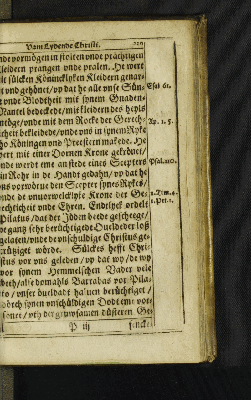 Vam Lydende Christi.
nde vormögen in stolten vnde prachtigen
Kleidern prangen vnde pralen. He wert
mit sülcken Köninckliyken Kleidern
vnd gehönet/ vp dat he alle vnse Sün-
vnde Blodtheit mit synem Gnaden
Mantel bedeckede/ mit Kledern des heyls
vnde mit dem Rocke der Gerech-
ticheit bekleidede/ vnde vns in synem Ryke
tho Köningen vnd Preestern makede. He
wert mit einer Dornen Krone gekrönet/
vnde werdt eme an stede eines Scepters
ein Rohr in de Handt gedahn/ vp dat he
vns vorwörue den Scepter synes Rykes/
vnde de vnuorwelcklicke Krone der Ge-
rechticheit vnde Ehren. Endtlyck ordelt
Pilatus/ dat der Jöden beede geschege/
de gantz sehr berüchtigede Dueldeder loß
gelaten/ vnde de vnschuldige Christus ge-
crützigt wörde. Sülckes hefft Chri-
stus vor vns geleden/ vp dat wy/ de wy
vor synem Hemmelschen Vader vele
alse domahls Barrabas vor Pila-
to/ vnser dueldadt haluen berüchtiget/
dörch synen vnschüldigen Dodt eme vor-
sönet/ vth der gruwsamen düsteren Ge-
P iij
fencke-
Esai 61.
Ap. 1. 5.
Psal. 110.
2. Tim. 4.
1. Pet. 1.